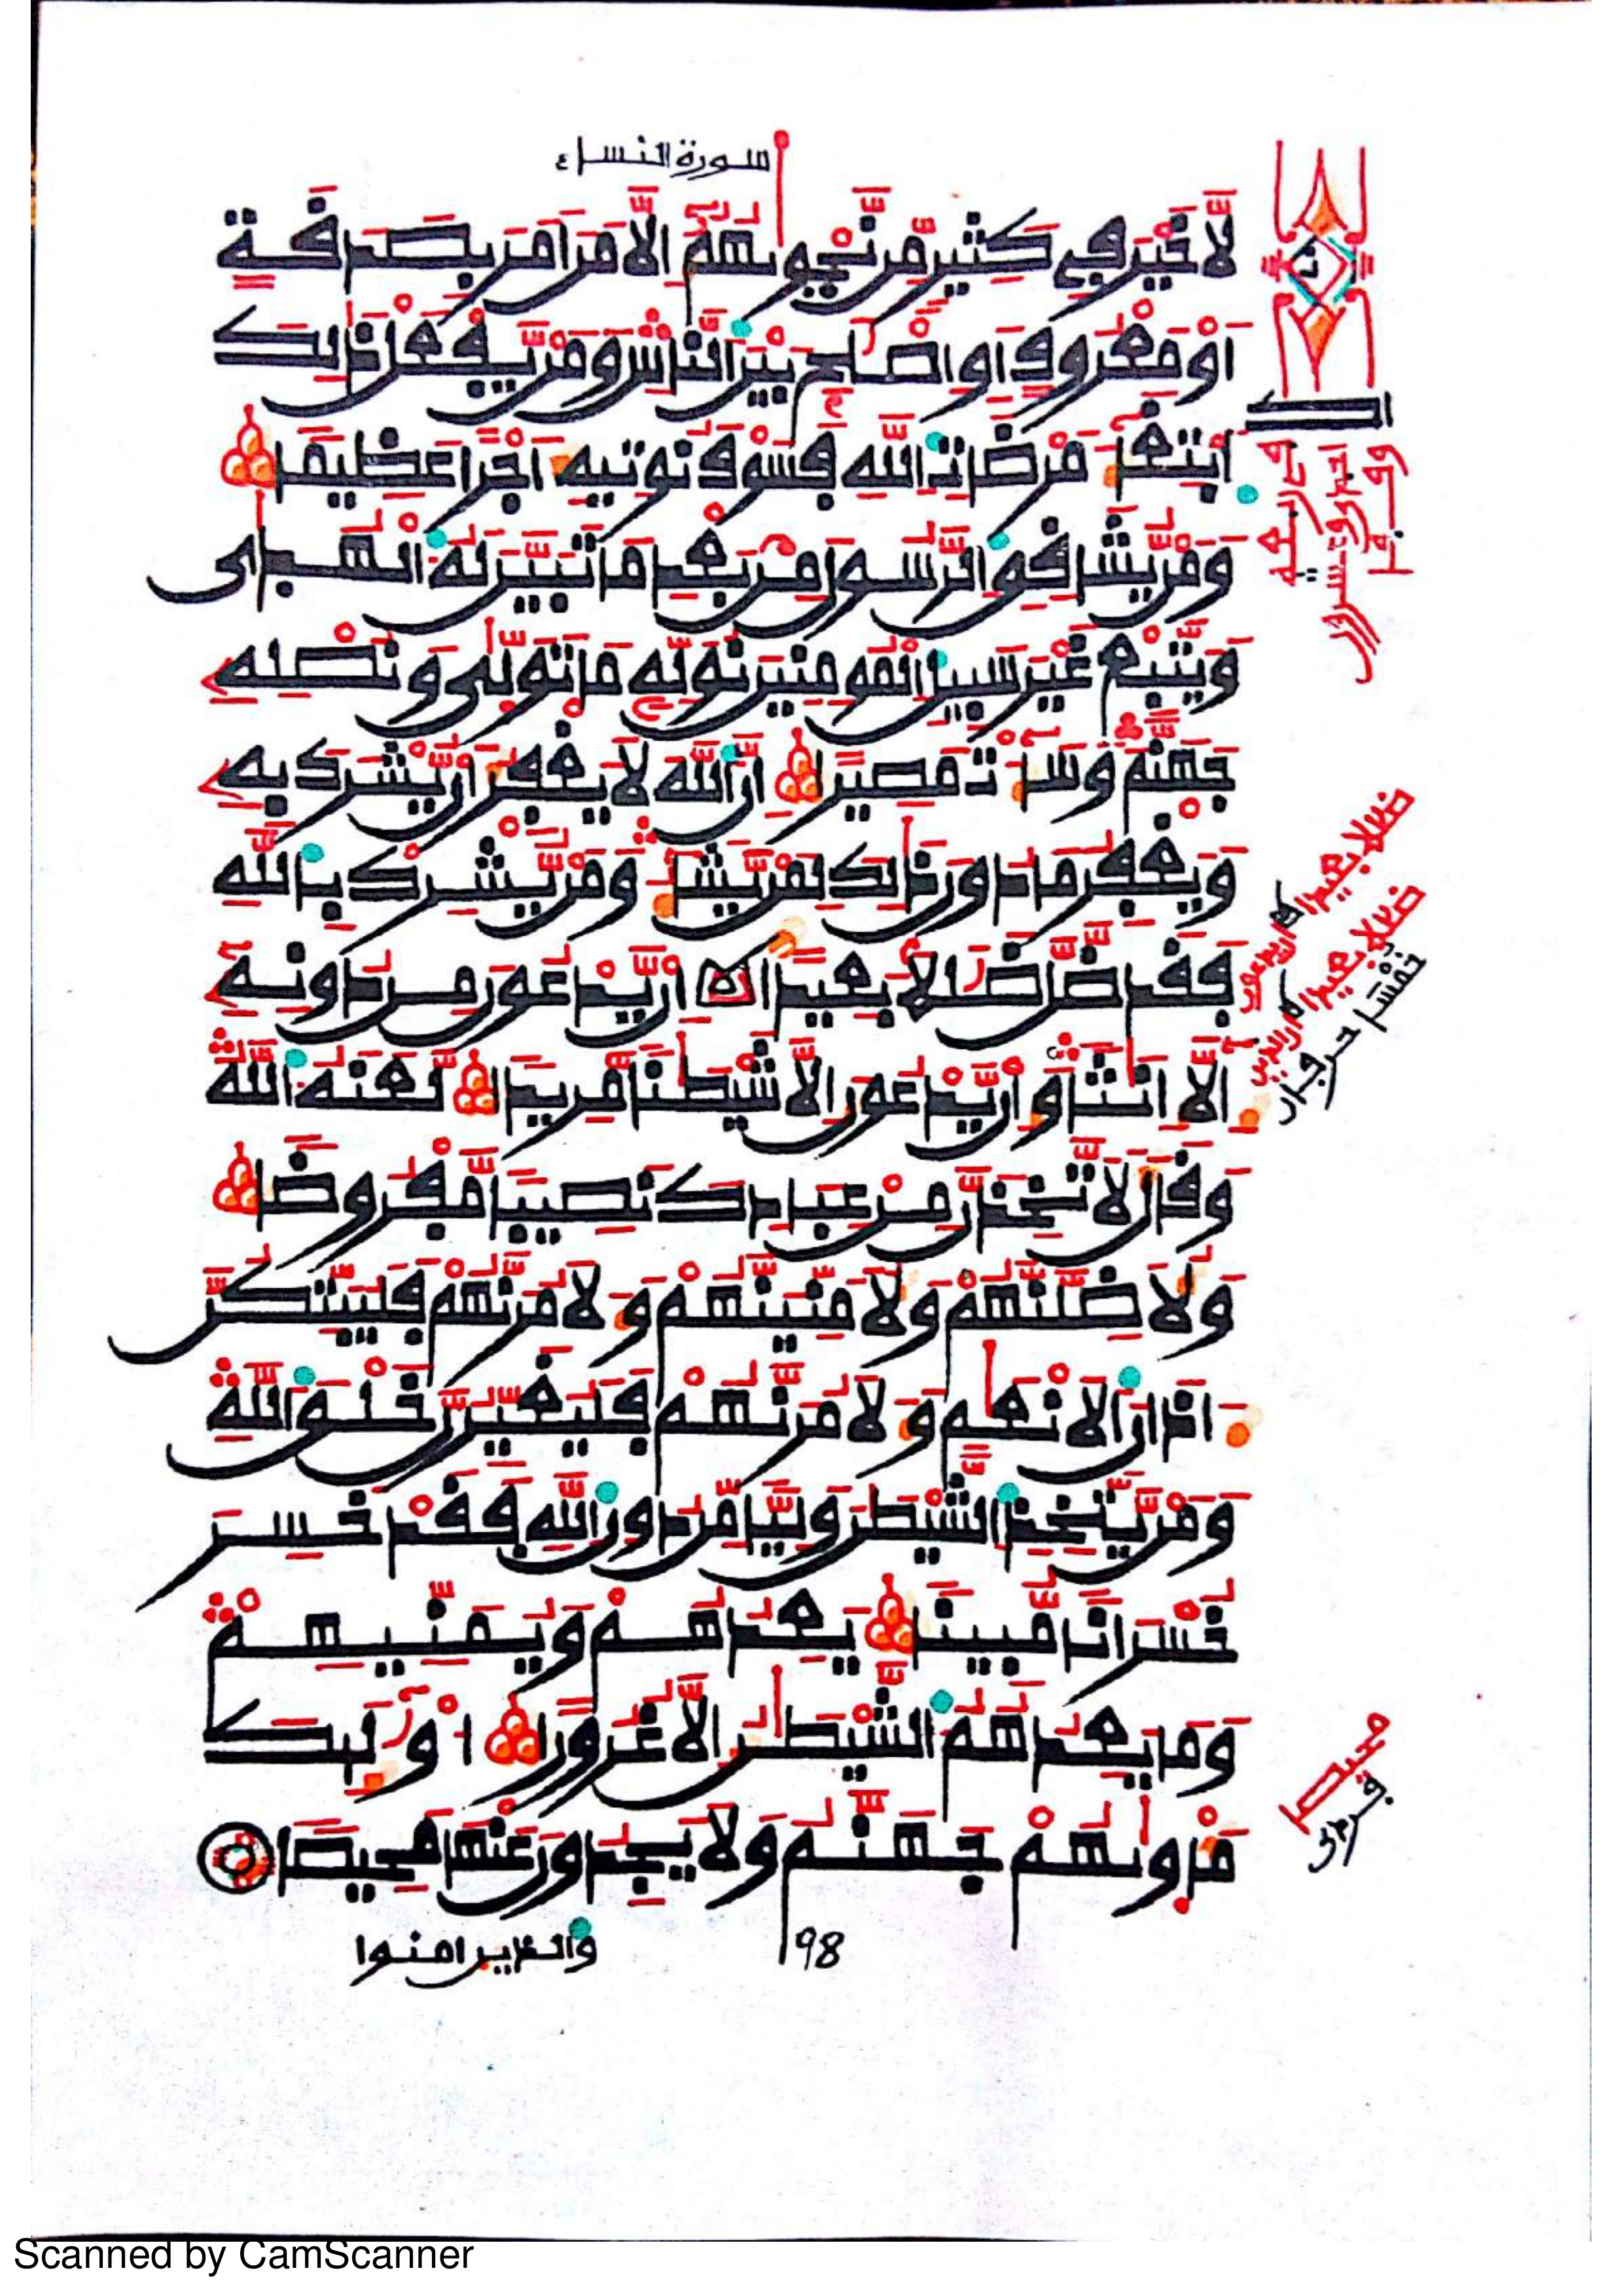 سورة النساء
لَا خَيْرَ فِي كَثِيرٍ مِّن نَّجْوَىٰهُمُ إِلَّا مَنَ اَمَرَ بِصَدَقَةٍ
اَوْ مَعْرُوفٍ اَوِ اِصْلَٰحٍ بَيْنَ اَلنَّاسِ وَمَنْ يَّفْعَلْ ذَٰلِكَ
اَبْتِغَآءَ مَرْضَاتِ اَللَّهِ فَسَوْفَ نُوتِيهِ أَجْراً عَظِيماً
وَمَنْ يُّشَاقِقِ اِلرَّسُولَ مِنۢ بَعْدِ مَا تَبَيَّنَ لَهُ اَلْهُدَىٰ
وَيَتَّبِعْ غَيْرَ سَبِيلِ اِلْمُومِنِينَ نُوَلِّهِ مَا تَوَلَّىٰ وَنُصْلِهِ
جَهَنَّمَ وَسَآءَتْ مَصِيراً إِنَّ اَللَّهَ لَا يَغْفِرُ أَنْ يُّشْرَكَ بِهِ
وَيَغْفِرُ مَا دُونَ ذَٰلِكَ لِمَنْ يَّشَآءُ وَمَنْ يُّشْرِكْ بِاللَّهِ
فَقَد ضَّلَّ ضَلَٰلاً بَعِيداً إِنْ يَّدْعُونَ مِن دُونِهِ
إِلَّا إِنَٰثاً وَإِنْ يَّدْعُونَ إِلَّا شَيْطَٰناً مَّرِيداً لَّعَنَهُ اَللَّهُ
وَقَالَ لَأَتَّخِذَنَّ مِنْ عِبَادِكَ نَصِيباً مَّفْرُوضاً
وَلَأُضِلَّنَّهُمْ وَلَأُمَنِّيَنَّهُمْ وَلَأٓمُرَنَّهُمْ فَلَيُبَتِّكُنَّ
ءَاذَانَ اَلَانْعَٰمِ وَلَأٓمُرَنَّهُمْ فَلَيُغَيِّرُنَّ خَلْقَ اَللَّهِ
وَمَنْ يَّتَّخِذِ اِلشَّيْطَٰنَ وَلِيّاً مِّن دُونِ اِللَّهِ فَقَدْ خَسِرَ
خُسْرَاناً مُّبِيناً يَعِدُهُمْ وَيُمَنِّيهِمْ
وَمَا يَعِدُهُمُ اَلشَّيْطَٰنُ إِلَّا غُرُوراً أُوْلَٰٓئِكَ
مَأْوَىٰهُمْ جَهَنَّمُ وَلَا يَجِدُونَ عَنْهَا مَحِيصاً
والذين امنوا
98
ضللا بعيدا
ضللا بعيدا
محيصا
Scanned by CamScanner